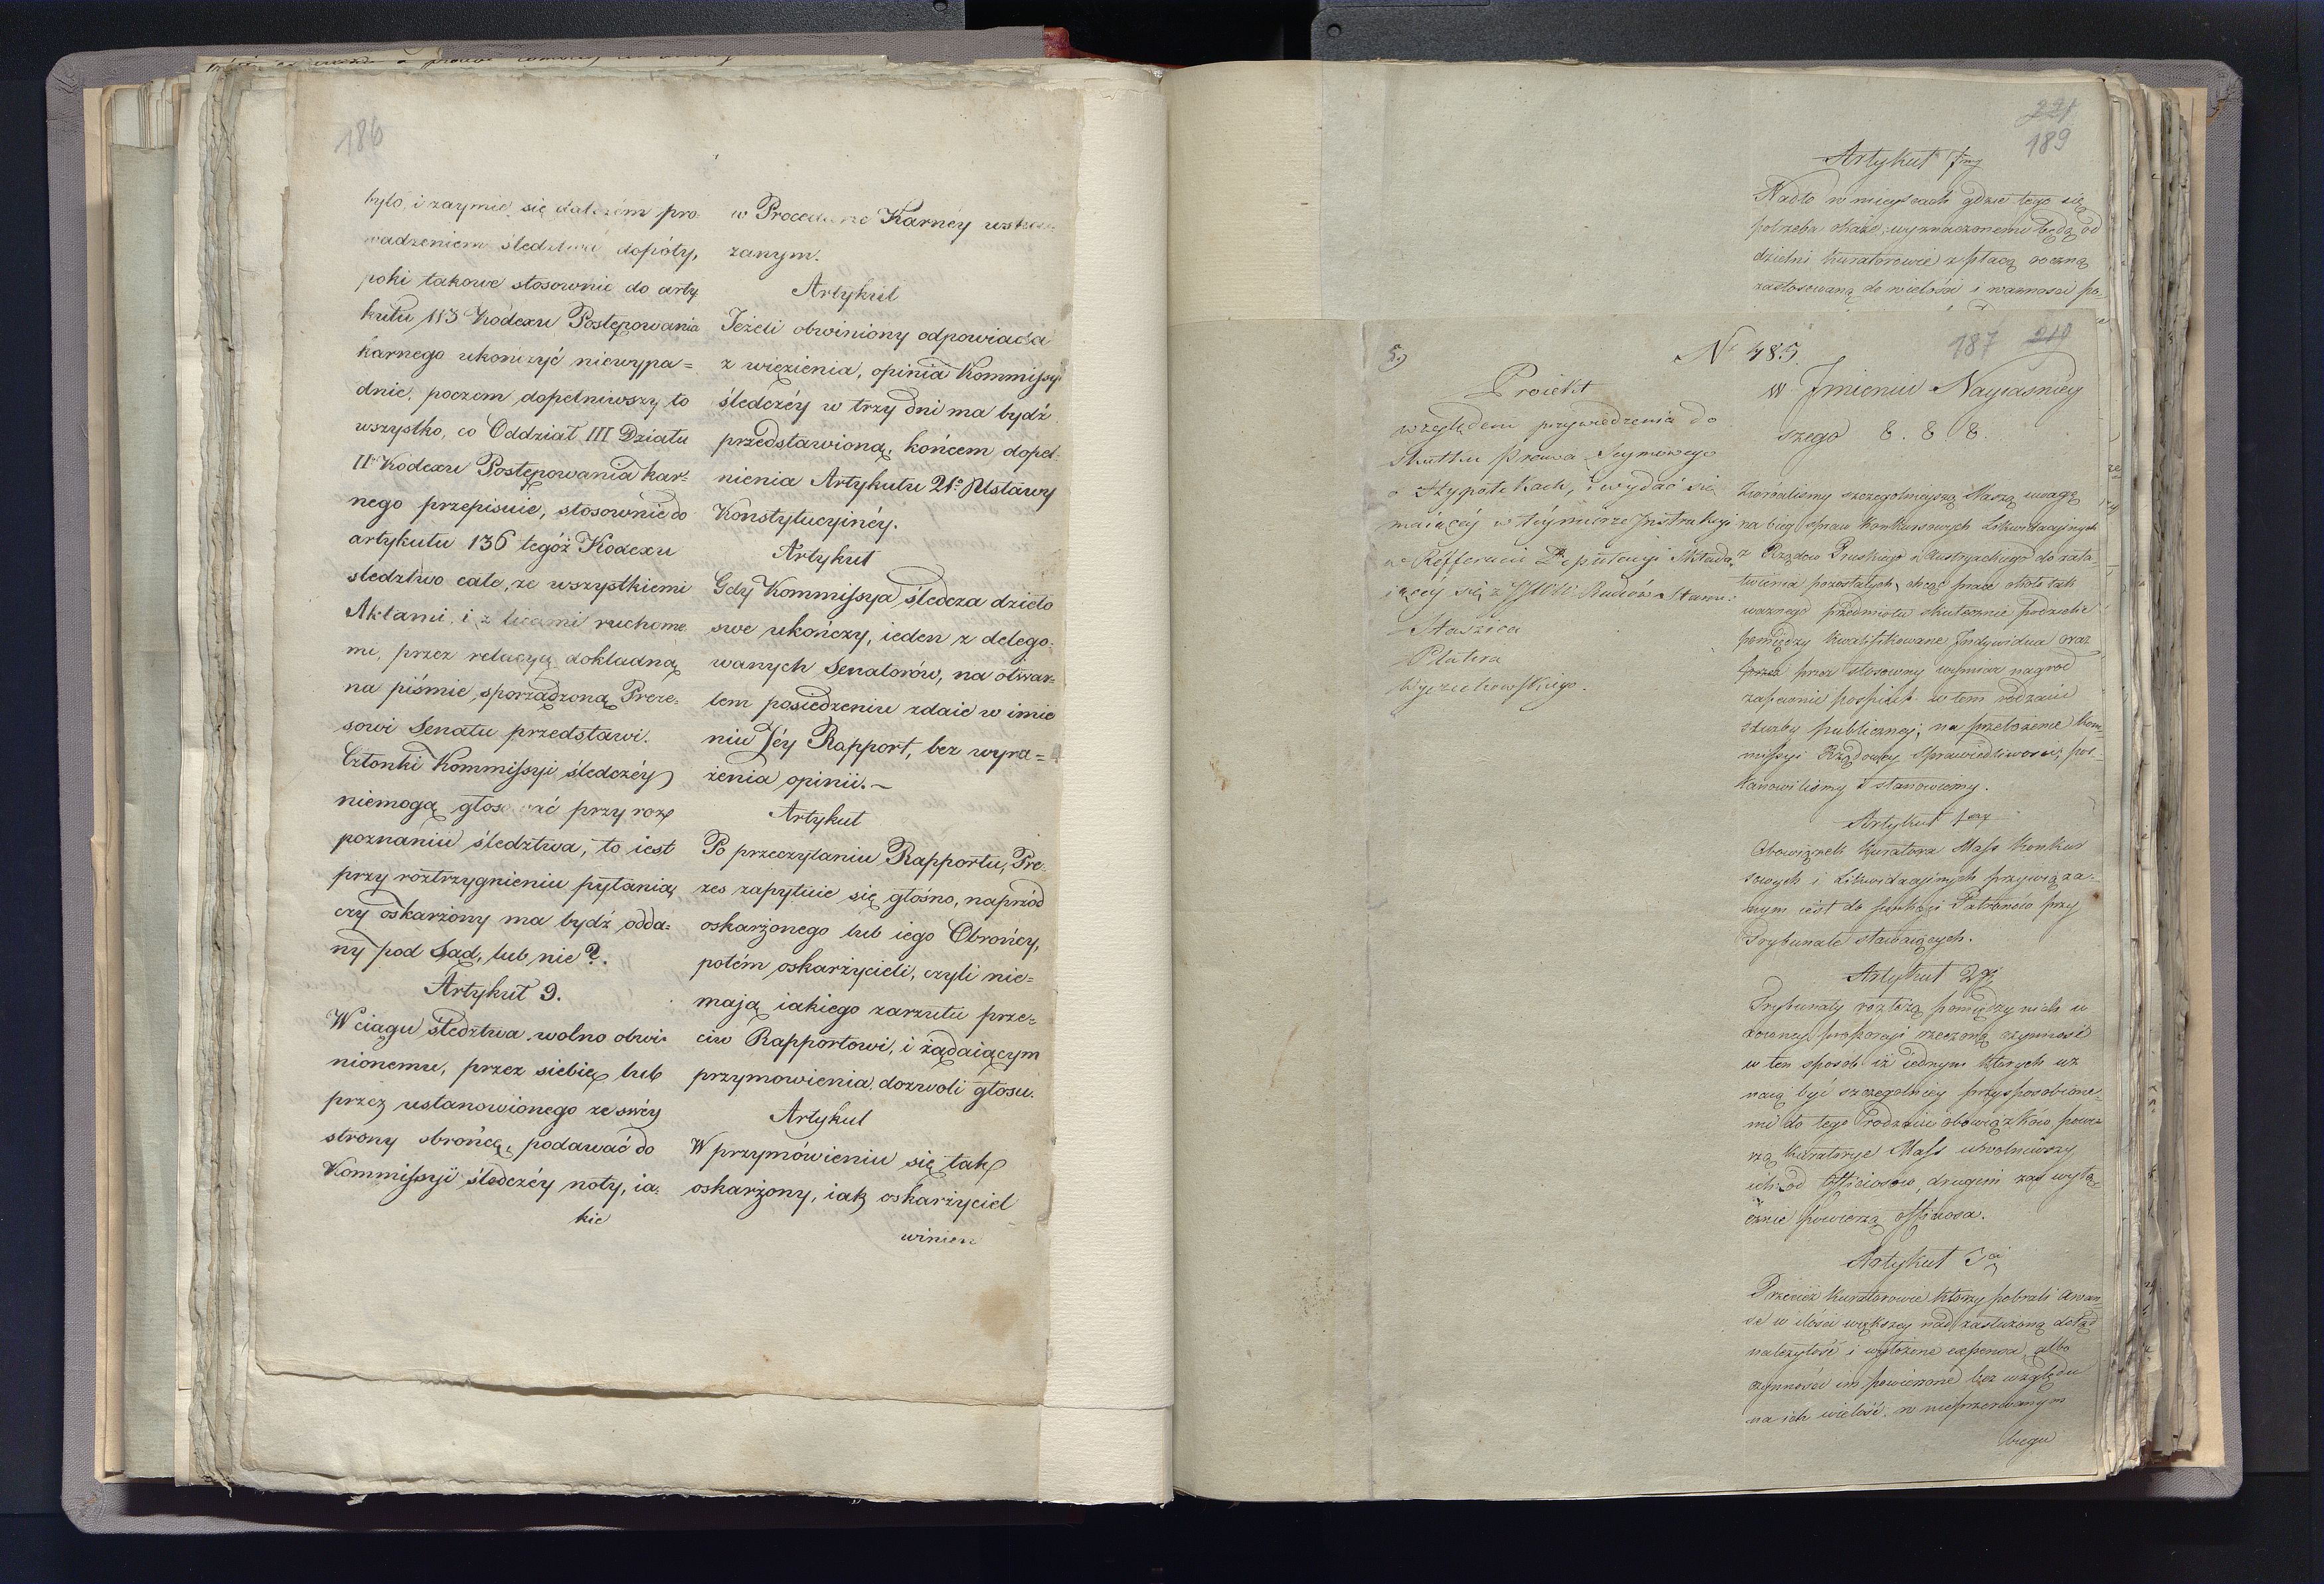 186
było, i zaymie się dalszém pro-
wadzeniem śledztwa dopóty,
poki takowe stosownie do arty
kułu 113 Kodexu Postępowania
karnego ukończyć niewypa=
dnie, poczem dopełniwszy to
wszystko, co Oddział III Działu
II Kodexu Postępowania kar-
nego przepisuie, stosownie do
artykułu 136 tegóż Kodexu
śledztwo całe, ze wszystkiemi
Aktami, i z licami ruchome
mi, przez relacyą dokładną
na piśmie sporządzoną Preze-
sowi Senatu przedstawi.
Członki Kommissyi śledczéy
niemogą głosować przy roz
poznaniu śledztwa, to iest
przy roztrzygnieniu pytania,
czy oskarżony ma bydź odda-
ny pod Sąd, lub nie?.
Artykuł 9.
W ciągu śledztwa wolno obwi-
nionemu, przez siebie, lub
przez ustanowionego ze swéy
strony obrońcę, podawać do
Kommissyi śledczéy noty, ia-
kie
w Procedurze Karnéy wska
zanym.
Artykuł
Jeżeli obwiniony odpowiada
z więzienia, opinia Kommissyi
śledczéy w trzy dni ma bydź
przedstawioną, końcem dopeł-
nienia Artykułu 21o Ustawy
Konstytucyinéy.
Artykuł
Gdy Kommissya śledcza dzieło
swe ukończy, ieden z delego-
wanych Senatorów, na otwar-
tem posiedzeniu zdaie w imie
niu Jéy Rapport, bez wyra=
żenia opinii.—
Artykuł
Po przeczytaniu Rapportu, Pre-
zes zapytuie się głośno, naprzód
oskarżonego lub iego Obrońcy,
potém oskarżycieli, czyli nie=
mają iakiego zarzutu prze=
ciw Rapportowi, i żądaiącym
przymowienia, dozwoli głosu.
Artykuł
W przymówieniu się tak
oskarżony, iak oskarżyciel
winien
221
189
Artykuł 7my
Nadto w mieyscach gdzie tego się
potrzeba okaże, wyznaczonemi będą od
dzielni Kuratorowie z płacą roczną
zastosowaną do wielości i ważności po-
5.)
No 485.
187 219
Proiekt
względem przywiedzenia do
skutku prawa Seymowego
o Hypotekach, i wydać się
maiącéy w téymierze Instrukcyi
w Refferacie Deputacyi składa-
iącéy się z JJWW. Radców Stanu:
Staszica
Platera
Wyczechowskiego.
W Jmieniu Nayiasniey
szego &. & &.
Zwróciliśmy szczegolnieyszą Naszą uwagę
na bieg spraw konkursowych Likwidacyinych
z Rządów Pruskiego i Austryackiego do zała
twienia pozostałych, chcąc prace około tak
ważnego przedmiotu skutecznie podzielić
pomiędzy kwalifikowane Indywidua oraz
przez stosowny wymiar nagrod
zapewnić pospiech w tem rodzaiu
służby publiczney; na przełożenie Kom-
missyi Rządowey Sprawiedliwości, pos-
tanowiliśmy i stanowiemy.
Artykuł 1szy
Obowiązek Kuratora Mass Konkur
sowych i Likwidacyinych przywiąza-
nym iest do funkcyi Patronów przy
Trybunale stawaiących.
Artykuł 2gi
Trybunały rozłożą pomiędzy nich w
równey proporcyi rzeczoną czynność
w ten sposob iż iednym ktorych uz
naią być szczegolniey przysposobione-
mi do tego rodzaiu obowiązków, powie
rzą Kuratorye Mass uwolniwszy
ich od Officiosow, drugim zaś wyłą-
cznie powierzą Officiosa.
Artykuł 3ci
Przecież Kuratorowie ktorzy pobrali awan-
se w ilości większey nad zasłużoną dotąd
należytość i wyłożone expensa, albo
czynności im powierzone bez względu
na ich wielość, w nieprzerwanym
biegu